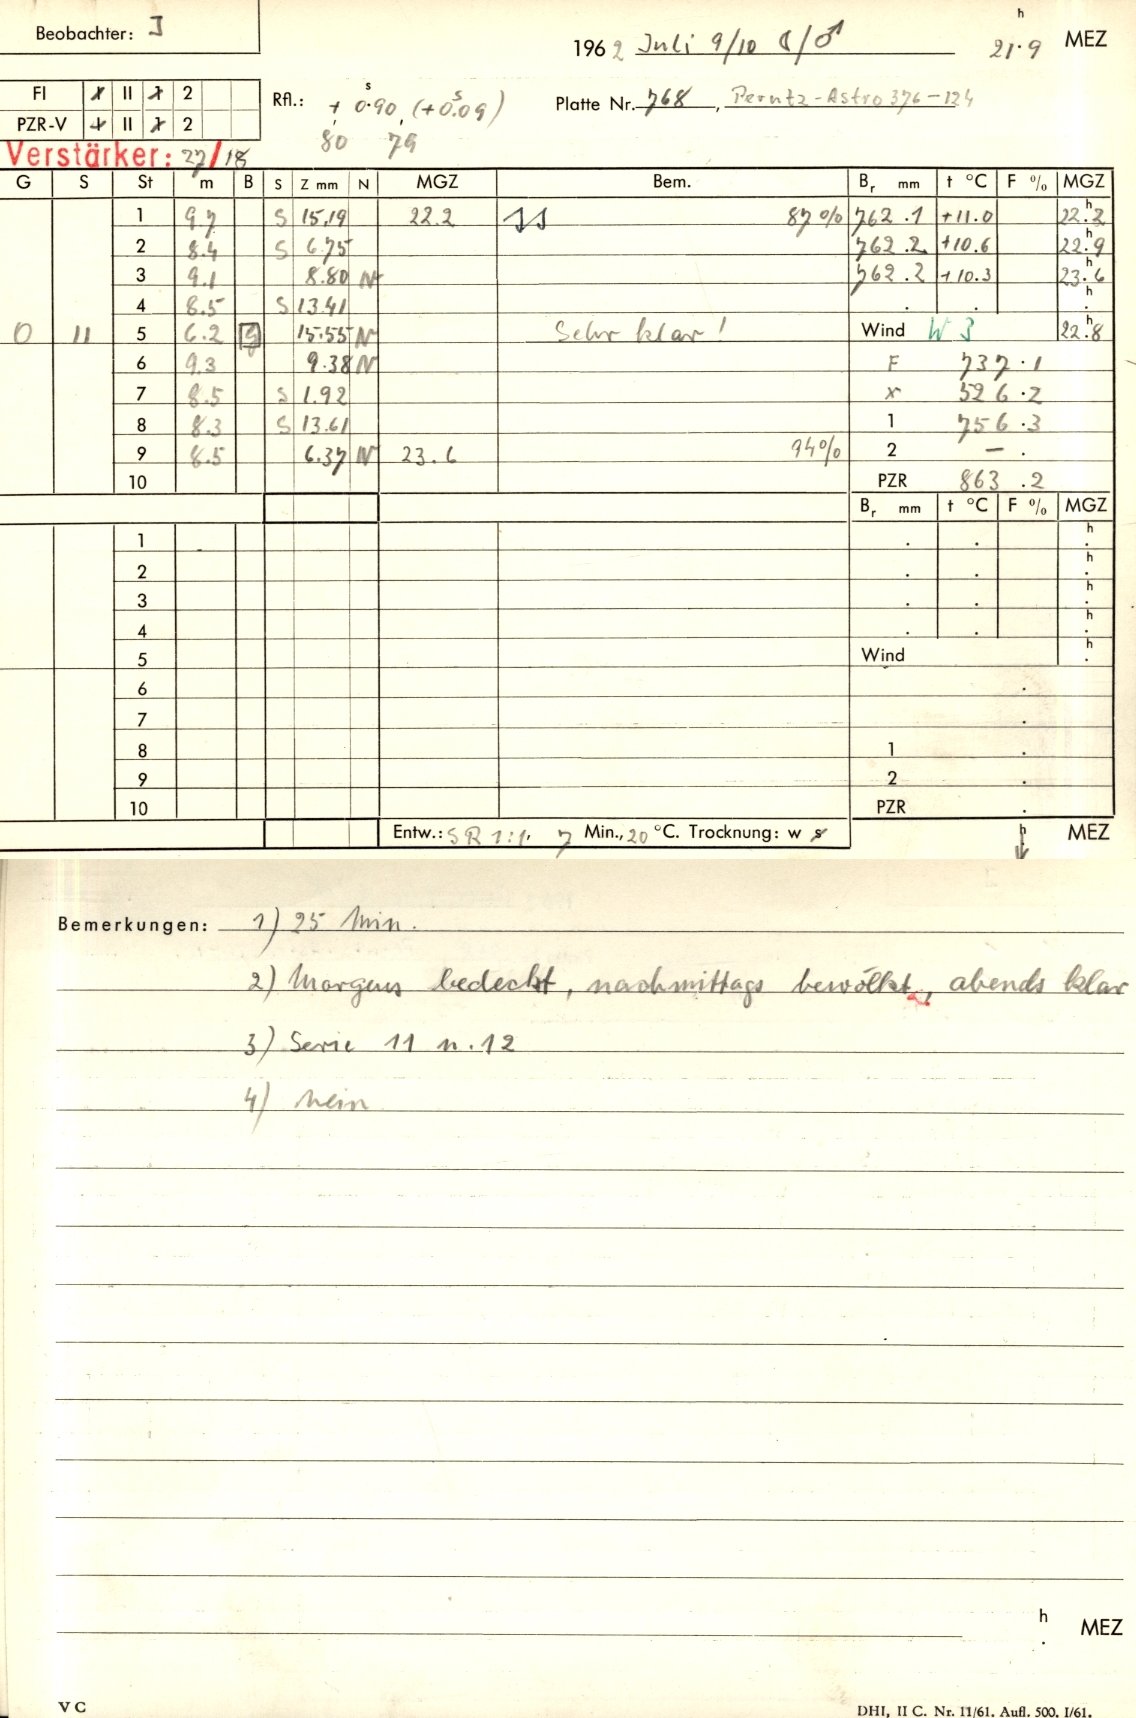 Beobachter: J
1962 Juli 9/10 ☾/♂ 21.9 h MEZ
FI I II 1 2
PZR-V I II 1 2
Rfl.: + 0.90 s (+0.09 s)
80 79
Platte Nr. 768, Perutz-Astro 376-124
Verstärker: 27/18
G S St m B S Z mm N MGZ Bem. Br mm t °C F % MGZ
1 9.7 S 15.19 22.2 11 87% 762.1 +11.0 22.2 h
2 8.4 S 6.75 762.2 +10.6 22.9 h
3 9.1 8.80 N 762.2 +10.3 23.6 h
4 8.5 S 13.41 . . . h
O 11 5 6.2 g 15.55 N Sehr klar! Wind W 3 22.8 h
6 9.3 9.38 N F 737.1
7 8.5 S 1.92 x 526.2
8 8.3 S 13.61 1 756.3
9 8.5 6.37 N 23.6 94% 2 – .
10 PZR 863.2
Br mm t °C F % MGZ
1 . . . h
2 . . . h
3 . . . h
4 . . . h
5 Wind . h
6 .
7 .
8 1 .
9 2 .
10 PZR .
Entw.: SR 1:1, 7 Min., 20 °C. Trocknung: w s h MEZ
Bemerkungen: 1) 25 Min.
2) Morgens bedeckt, nachmittags bewölkt, abends klar
3) Serie 11 u. 12
4) nein
h . MEZ
V C
DHI, II C. Nr. 11/61. Aufl. 500. I/61.